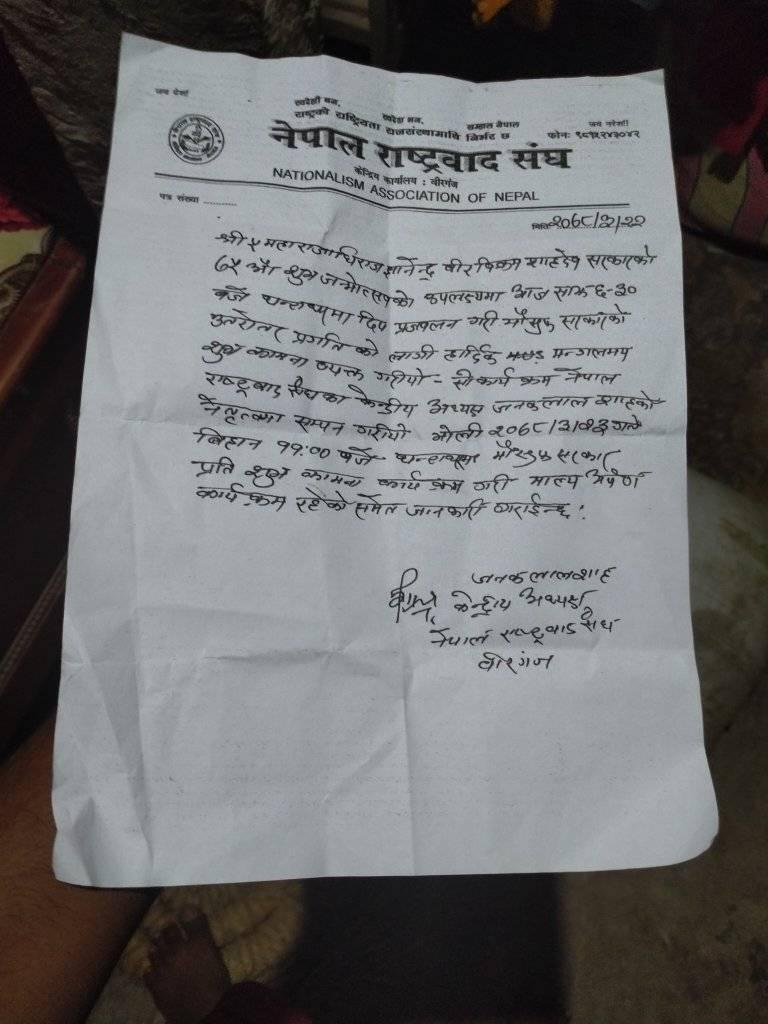 जय देश!
स्वदेशी मन, स्वदेश मन, सम्हाल नेपाल जय नरेश!!
राष्ट्रको राष्ट्रियता राजसंस्थामाथि निर्भर छ फोनः ९८१५२४३०४२
नेपाल राष्ट्रवाद संघ
केन्द्रिय कार्यालय : वीरगंज
NATIONALISM ASSOCIATION OF NEPAL
पत्र संख्या ...........
मिति २०६८/३/२२
श्री ५ महाराजाधिराज ज्ञानेन्द्र वीर विक्रम शाहदेव सरकारको
६५ औं शुभ जन्मोत्सवको उपलक्ष्यमा आज साझ ६-३०
बजे घन्टाघरमा दिप प्रज्वलन गरी मौसुफ सरकारको
उत्तरोत्तर प्रगति को लागी हार्दिक मंगलमय
शुभ कामना व्यक्त गरीयो - सो कार्य क्रम नेपाल
राष्ट्रवाद संघका केन्द्रीय अध्यक्ष जनकलाल शाहको
नेतृत्वमा सम्पन गरीयो भोली २०६८/३/२३ गते
बिहान ११:०० बजे घन्टाघरमा मौसुफ सरकार
प्रति शुभ कामना कार्य क्रम गरी माल्य अर्पण
कार्य क्रम रहेको समेत जानकारी गराईन्छ !
जनकलाल शाह
केन्द्रीय अध्यक्ष
नेपाल राष्ट्रवाद संघ
वीरगंज